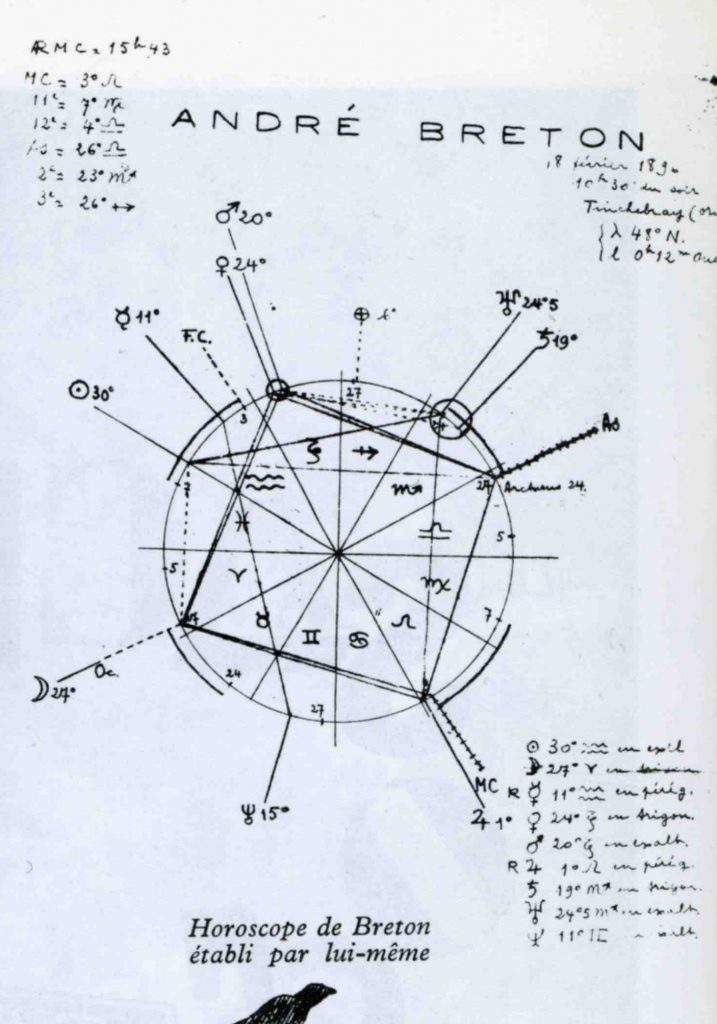 ARMC = 15ʰ 43
MC = 3° ♌
11ᵉ = 7° ♍
12ᵉ = 4° ♎
As = 26° ♎
2ᵉ = 23° ♏
3ᵉ = 26° ♐
ANDRÉ BRETON
18 février 189
10ʰ 30 du soir
Tinchebray (Or
λ 48° N.
l 0ʰ12ᵐ Oue
♂ 20°
♀ 24°
⊕
☿ 11°
F.C.
♅ 24°5
♄ 19°
☉ 30°
27
3
As
♑ ♐
♒ ♏
27 Arcturus 24.
♓ ♎
5
5
♈ ♍
7
♉ ♊ ♋ ♌
Oc.
☽ 27°
24
27
MC
♆ 15°
♃ 1°
☉ 30° ♒ en exil
☽ 27° ♈ en
R ☿ 11° ♒ en périg.
♀ 24° ♑ en trigon.
♂ 20° ♑ en exalt.
R ♃ 1° ♌ en périg.
♄ 19° ♏ en trigon.
♅ 24°5 ♏ en exalt.
♆ 11° ♊
Horoscope de Breton
établi par lui-même